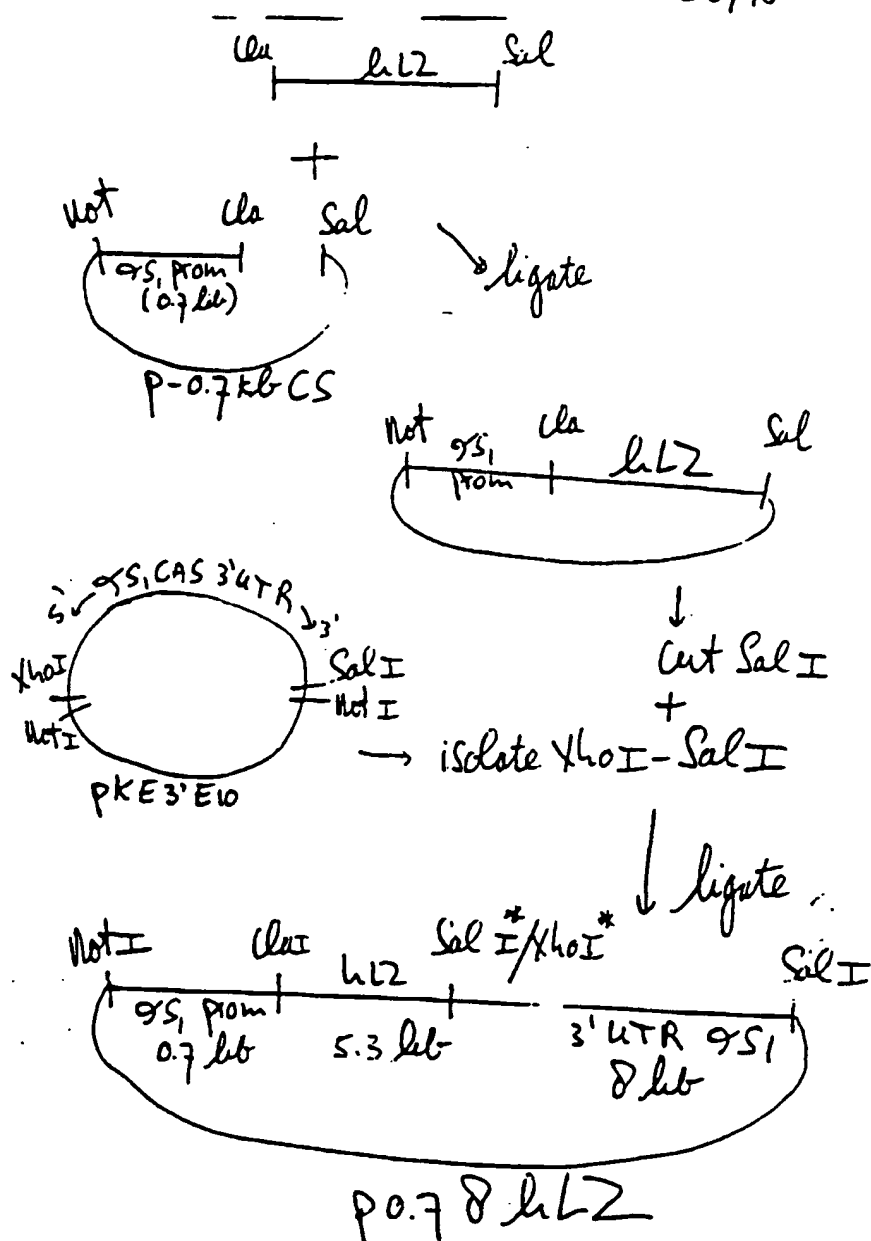 Cla hLZ Sal
+
Not Cla Sal
αS₁ prom
(0.7 kb)
ligate
p-0.7kb CS
Not αS₁ Cla hLZ Sal
prom
5' αS₁CAS 3'UTR 3'
XhoI SalI
NotI NotI
pKE3'E10
Cut SalI
+
isolate XhoI-SalI
ligate
NotI ClaI hLZ SalI*/XhoI* SalI
αS₁ prom 3'UTR αS₁
0.7 kb 5.3 kb 8 kb
p0.7 8 hLZ